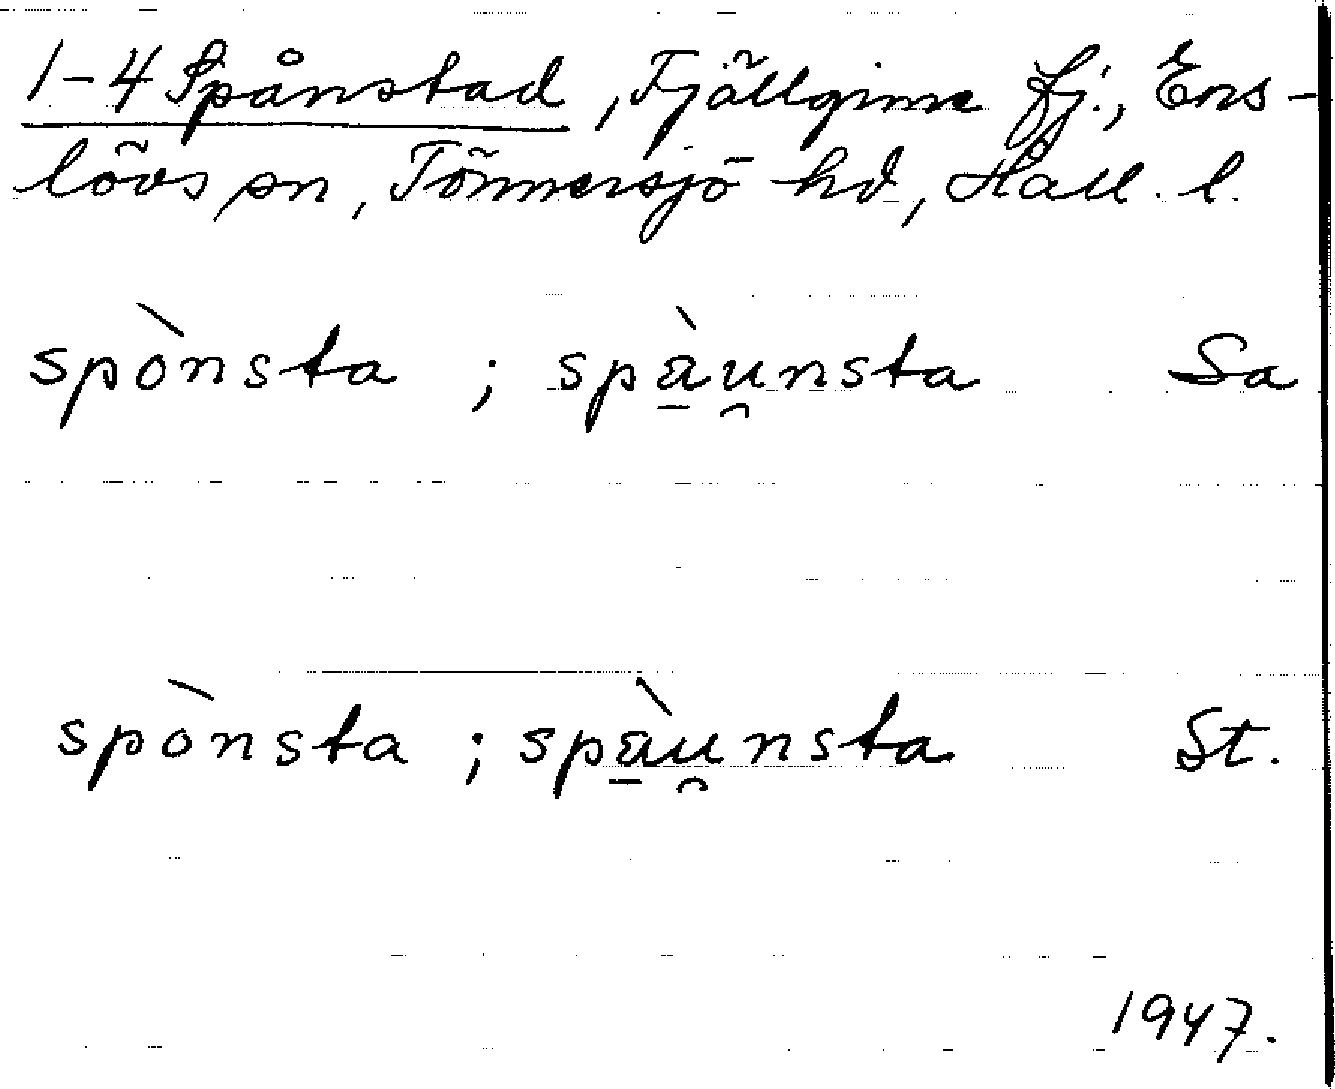 1-4 Spånstad, Fjällgims fj., Ens-
lövs sn, Tönnersjö hd, Hall. l.
spònsta ; spà̱u̯nsta Sa
spònsta ; spà̱u̯nsta St.
1947.